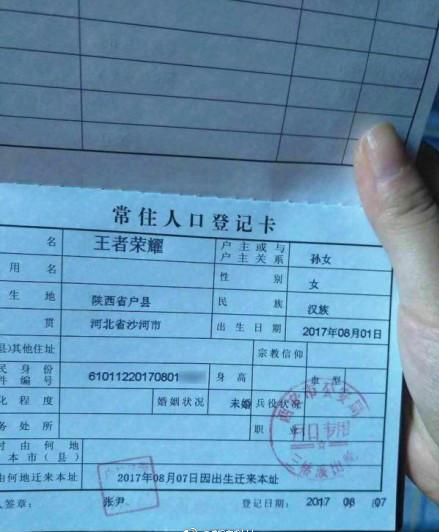 常住人口登记卡
名 王者荣耀 户主或与户主关系 孙女
用名 性别 女
生地 陕西省户县 民族 汉族
贯 河北省沙河市 出生日期 2017年08月01日
县)其他住址 宗教信仰
民身份件编号 61011220170801 身高 血型
化程度 婚姻状况 未婚 兵役状况
务处所 职业
时由何地
本市(县)
由何地迁来本址 2017年08月07日因出生迁来本址
人签章: 张尹 登记日期: 2017 08 07